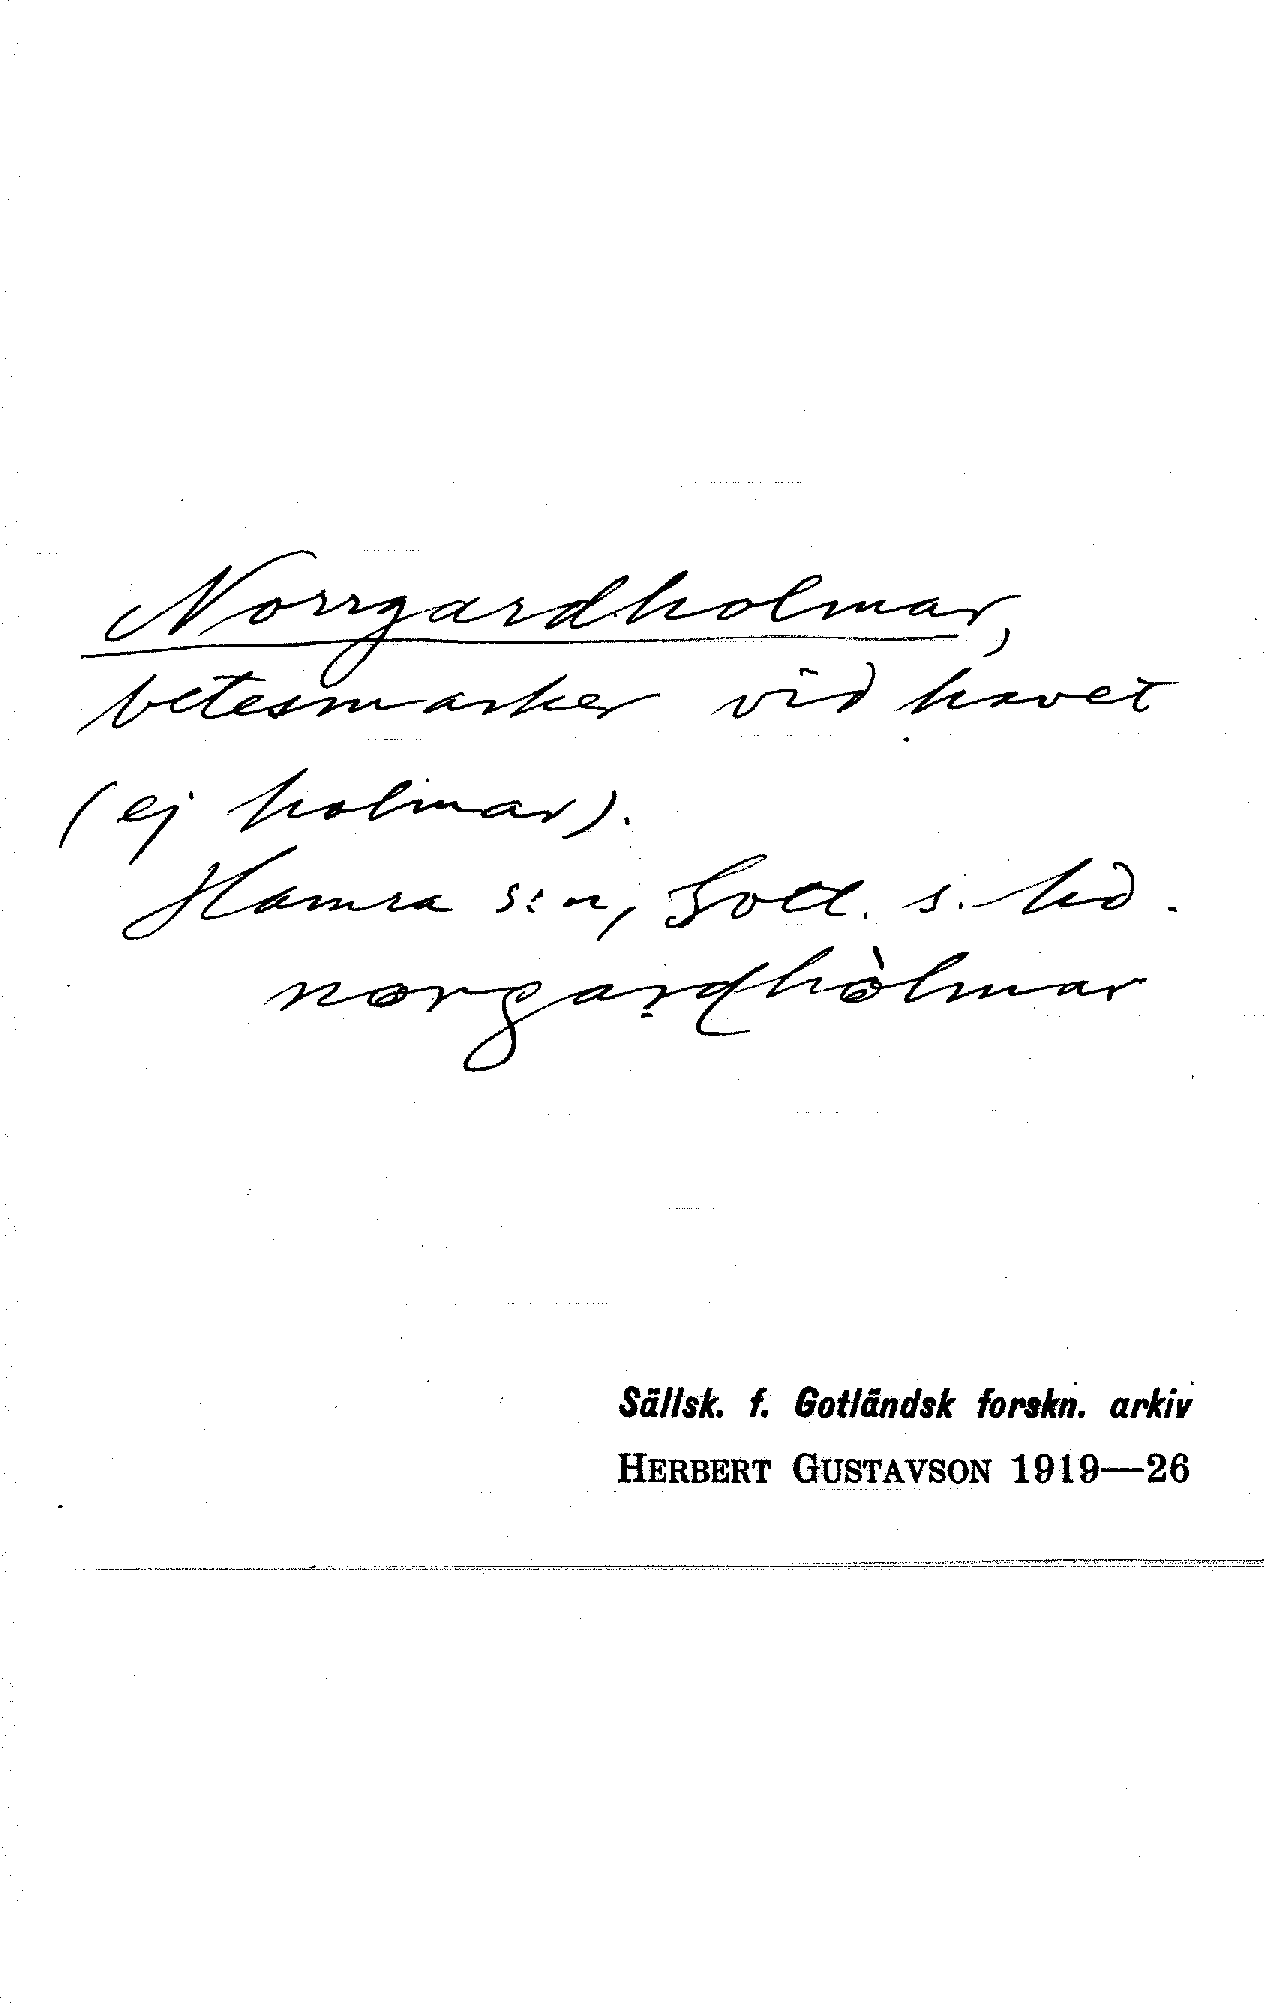 Norrgardholmar,
betesmarker vid havet
(ej holmar).
Hamra s:n, Gotl. s. hd.
norgardhòlmar
Sällsk. f. Gotländsk forskn. arkiv
HERBERT GUSTAVSON 1919—26